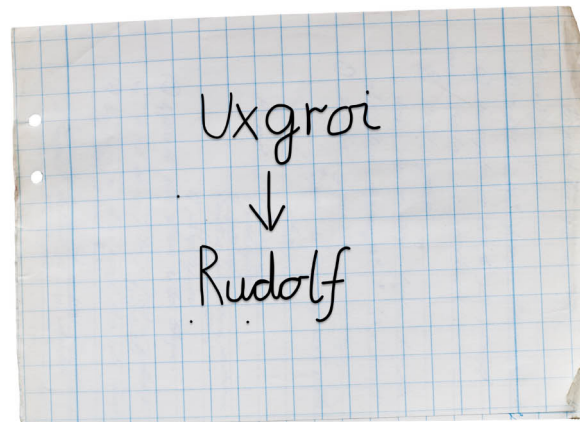 Uxgroi
↓
Rudolf